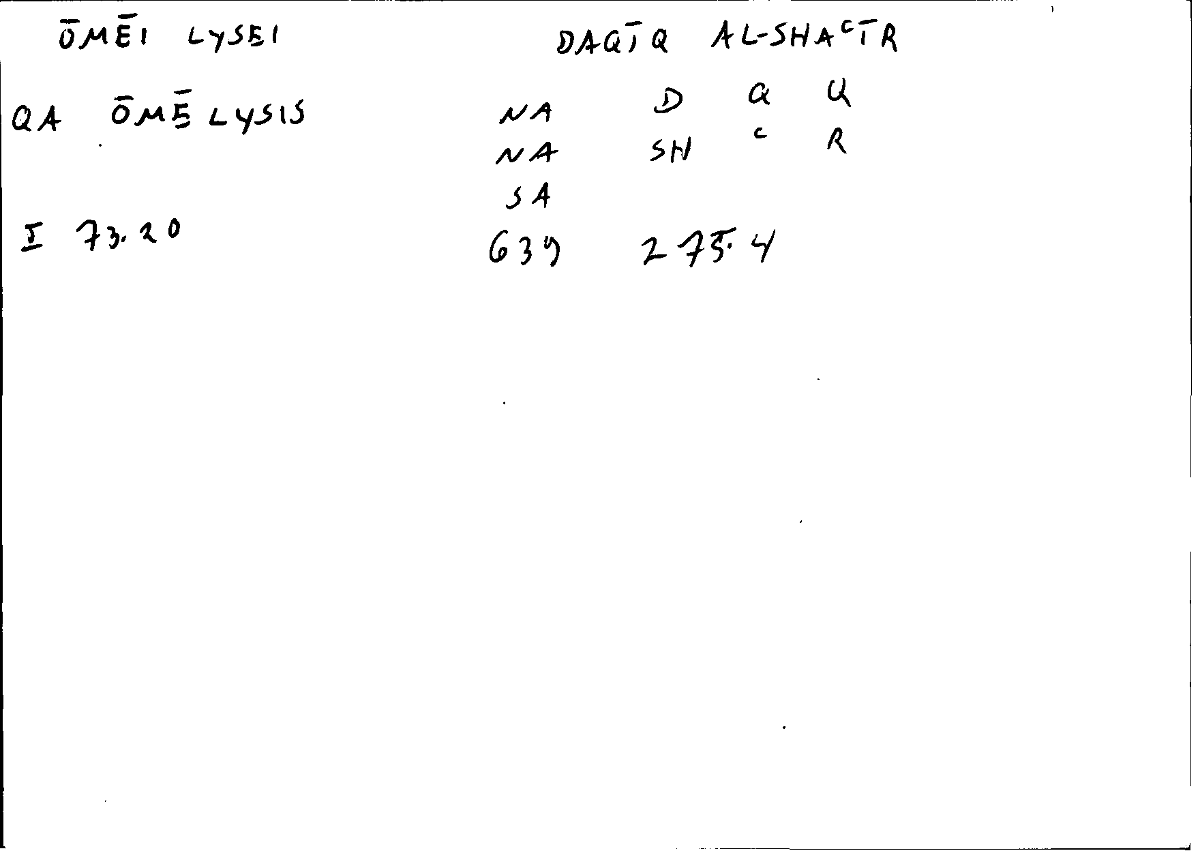 ŌMĒI LYSEI DAQĪQ AL-SHAᶜĪR
QA ŌMĒ LYSIS NA D Q Q
NA SH ᶜ R
SA
I 73.20 639 275.4